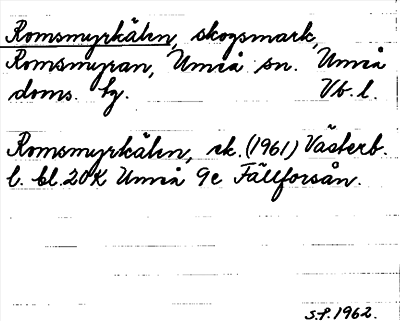 Romsmyrkälen, skogsmark,
Romsmyran, Umeå sn. Umeå
doms. tg. Vb. l.
Romsmyrkälen, ek. (1961) Västerb.
l. bl. 20K Umeå 9e Fällforsån.
S.P. 1962.